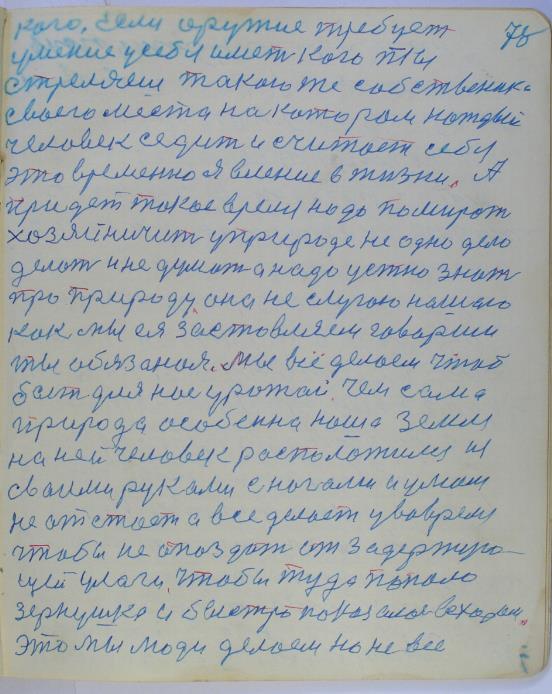 кого, Если оружие требует 78
умение усебя имет кого ты
стреляеш такого же собственика
своего места на котором каждый
человек седит и считает себя
это временно явление в жизни. А
придет такое время надо помират
хозяйничит уприроде не одно дело
делат и не думат а надо устно знат
про природу, она не слугою нашаю
как мы ея заставляем говариш
ты обязаная. Мы всё делаем чтоб
быт для нас урожай. Чем сама
природа особенна наша земля
на ней человек расположился и
своими руками с ногами и умом
не отстает а все делает увовремя
чтобы не опоздат от задержую-
щей улаги, чтобы туда попало
зернушка и быстро показалось всходам.
Это мы люди делаем но не все